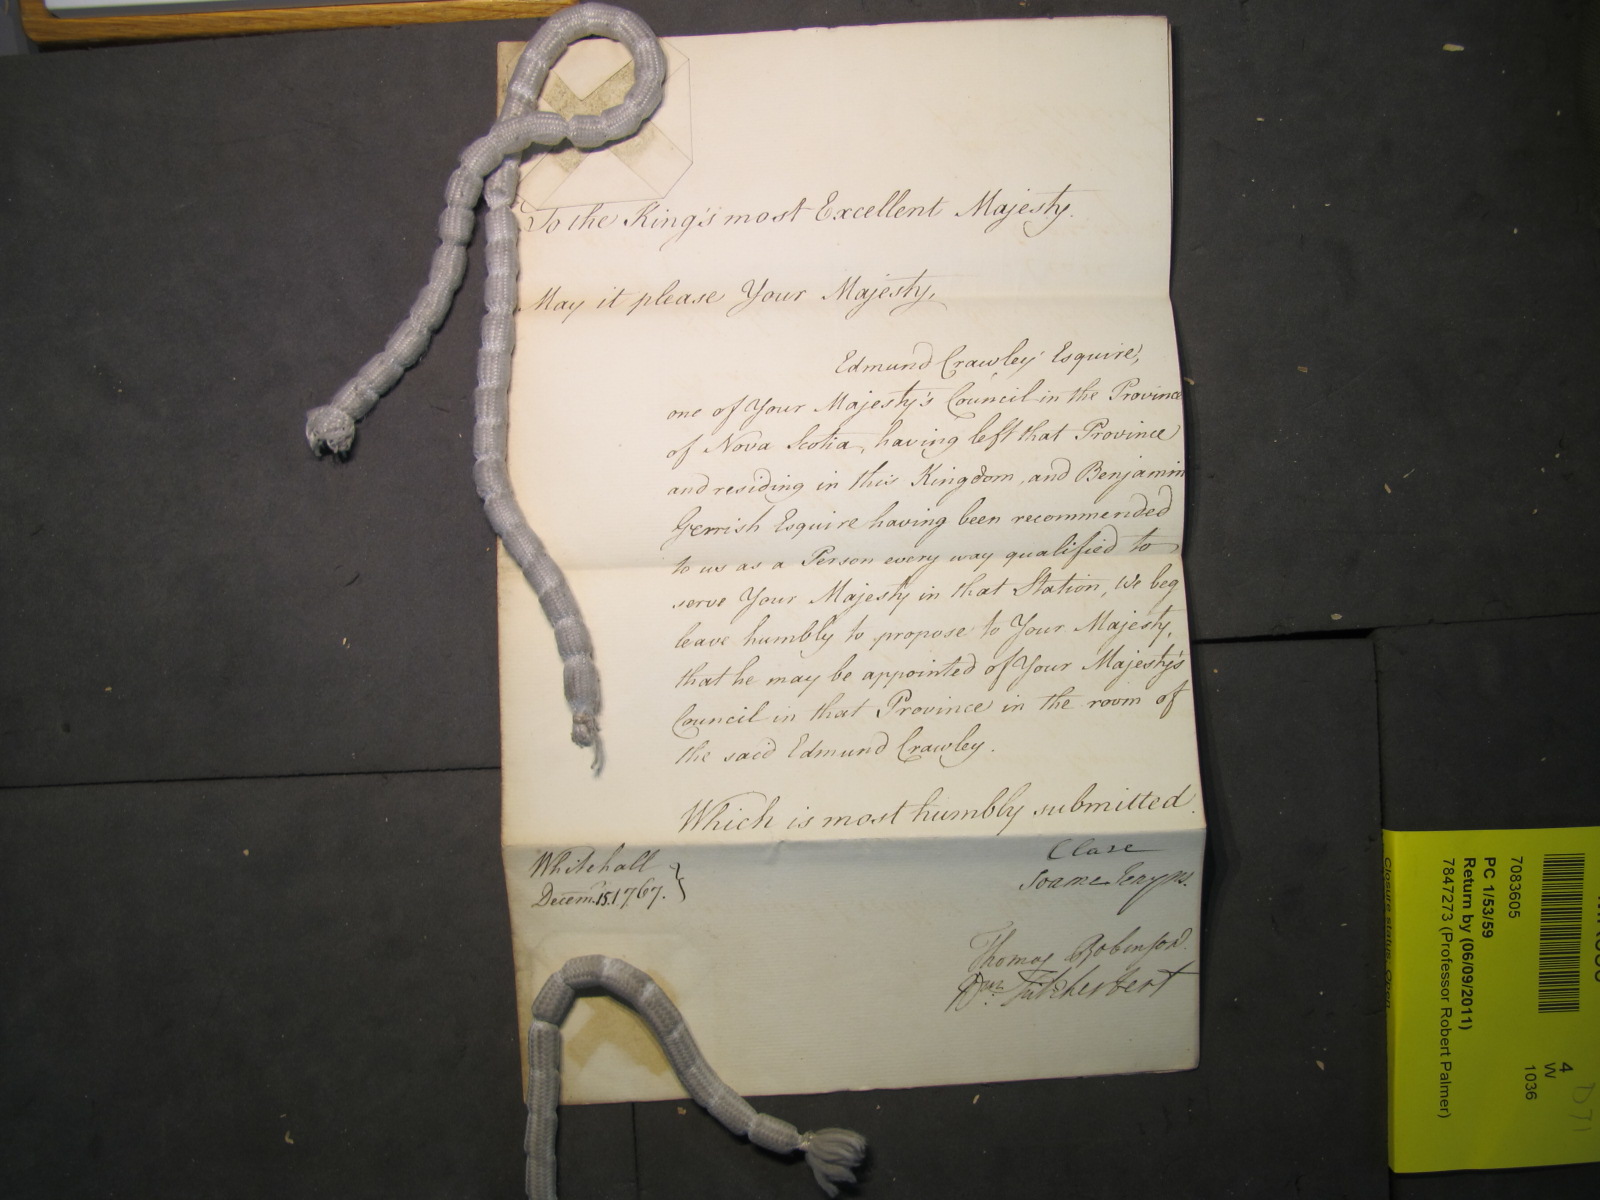 To the King's most Excellent Majesty.
May it please Your Majesty,
Edmund Crawley Esquire,
one of Your Majesty's Council in the Province
of Nova Scotia, having left that Province
and residing in this Kingdom, and Benjamin
Gerrish Esquire having been recommended
to us as a Person every way qualified to
serve Your Majesty in that Station, We beg
leave humbly to propose to Your Majesty,
that he may be appointed of Your Majesty's
Council in that Province in the room of
the said Edmund Crawley.
Which is most humbly submitted.
Whitehall
Decemr. 15. 1767.
Clare
Soame Jenyns.
Thomas Robinson.
Wm. Fitzherbert
7083605
PC 1/53/59
Return by (06/09/2011)
7847273 (Professor Robert Palmer)
Closure status: Open
4
W
1036